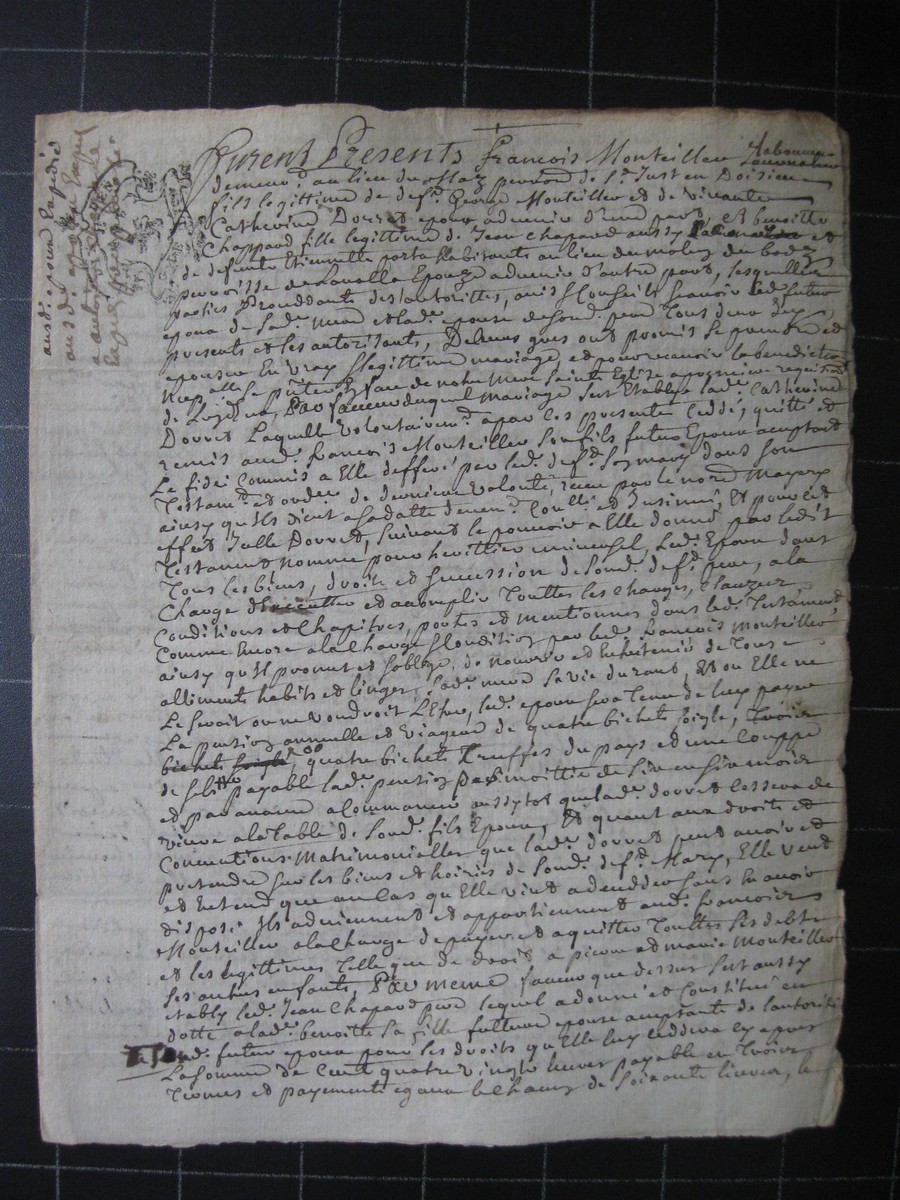 Furent Presents Francois Monteiller laboureur
demeur.t au lieu du Maz parroi de S.t Just en Doisieu
fils legittime de def.t George Monteiller et de vivante
Catherine Dorret epoux advenir d'une part, et benoitte
Chappard fille legittime de Jean Chapard aussy et
de defunte Etiennette porta habitants au lieu du
parroisse de Lavalla Epouze advenir d'autre part, lesquelles
parties procedante des autorittes, avis et Conseils scavoir led. futur
epoux de sad.e mere et lad.e epouse de sond. pere tous deux icy
presents et les autorisants, De leurs gres ont promis se prendre et
epouser En vray et legittime mariage, et pour recevoir la benediction
nuptialle se p.nter En face de notre Mere Sainte Eglise a premiere requisition
de L'un d'eux, Par faveur duquel mariage S'est Etablye lad.e Catherine
Dorret Laquelle volontairem.t a par les presente Cedde, quitté et
remis aud. francois Monteiller son fils futur Epoux acceptant
Le fidei Commis a Elle defferé par led. def.t Son mary dans son
Testam.t et ordre de derniere volonté, receu par le nore
ainsy qu'ils dient a sa datte deuem.t Conllé et Insinué, Et pour cet
effect Icelle Dorret, Suivant le pouvoir a Elle donné par ledit
Testament nomme pour heritier universel led. Epoux dans
Tous les biens, droits et succession de Sond. def.t pere, a la
Charge d'Executter et accomplir Touttes les charges, Clauzes
Conditions et Chapitres, portes et mentionnes dans led. Testament,
Comme Encore a la Charge et Condition par led. francois Monteiller
ainsy qu'il promet et s'oblige, de nourrir et Entretenir de Tous
alliments habits et linges, Sad.e mere sa vie durant, Et ou Elle ne
Le seroit ou ne voudroit L'Etre, led. epoux sera Tenu de luy payer
La pension annuelle et viagere de quatre bichets soigle, Trois
bichets quatre bichets Truffes du pays et une Couppe
de sel payable lad.e pension par moittie de six en six mois
et par avance a Commencer aussytot que lad.e dorret cessera de
vivre a la Table de Sond. fils Epoux, Et quant aux droits et
Conventions Matrimonialles que lad.e dorret peut avoir et
pretendre sur les biens et hoiries de Sond. def.t Mary, Elle veut
et Entend que au Cas qu'Elle vint a decedder sans En avoir
disposé Ils adviennent et appartiennent aud. francois
Monteiller a la Charge de payer et aquitter Touttes ses debtes
et les legittimes Telle que de droit a pierre et marie Monteiller
ses autres enfants, Par meme faveur que dessus S'est aussy
etably led. Jean Chapard pere lequel a donné et Constitué en
dotte a lad.e benoitte Sa fille future epouse acceptante de l'autorité
de Sond. futur epoux pour les droits qu'Elle luy ceddera cy apres
La Somme de Cent quatre vingts livres payable en Trois
Termes et payements egaux le chacun de soixante livres, le